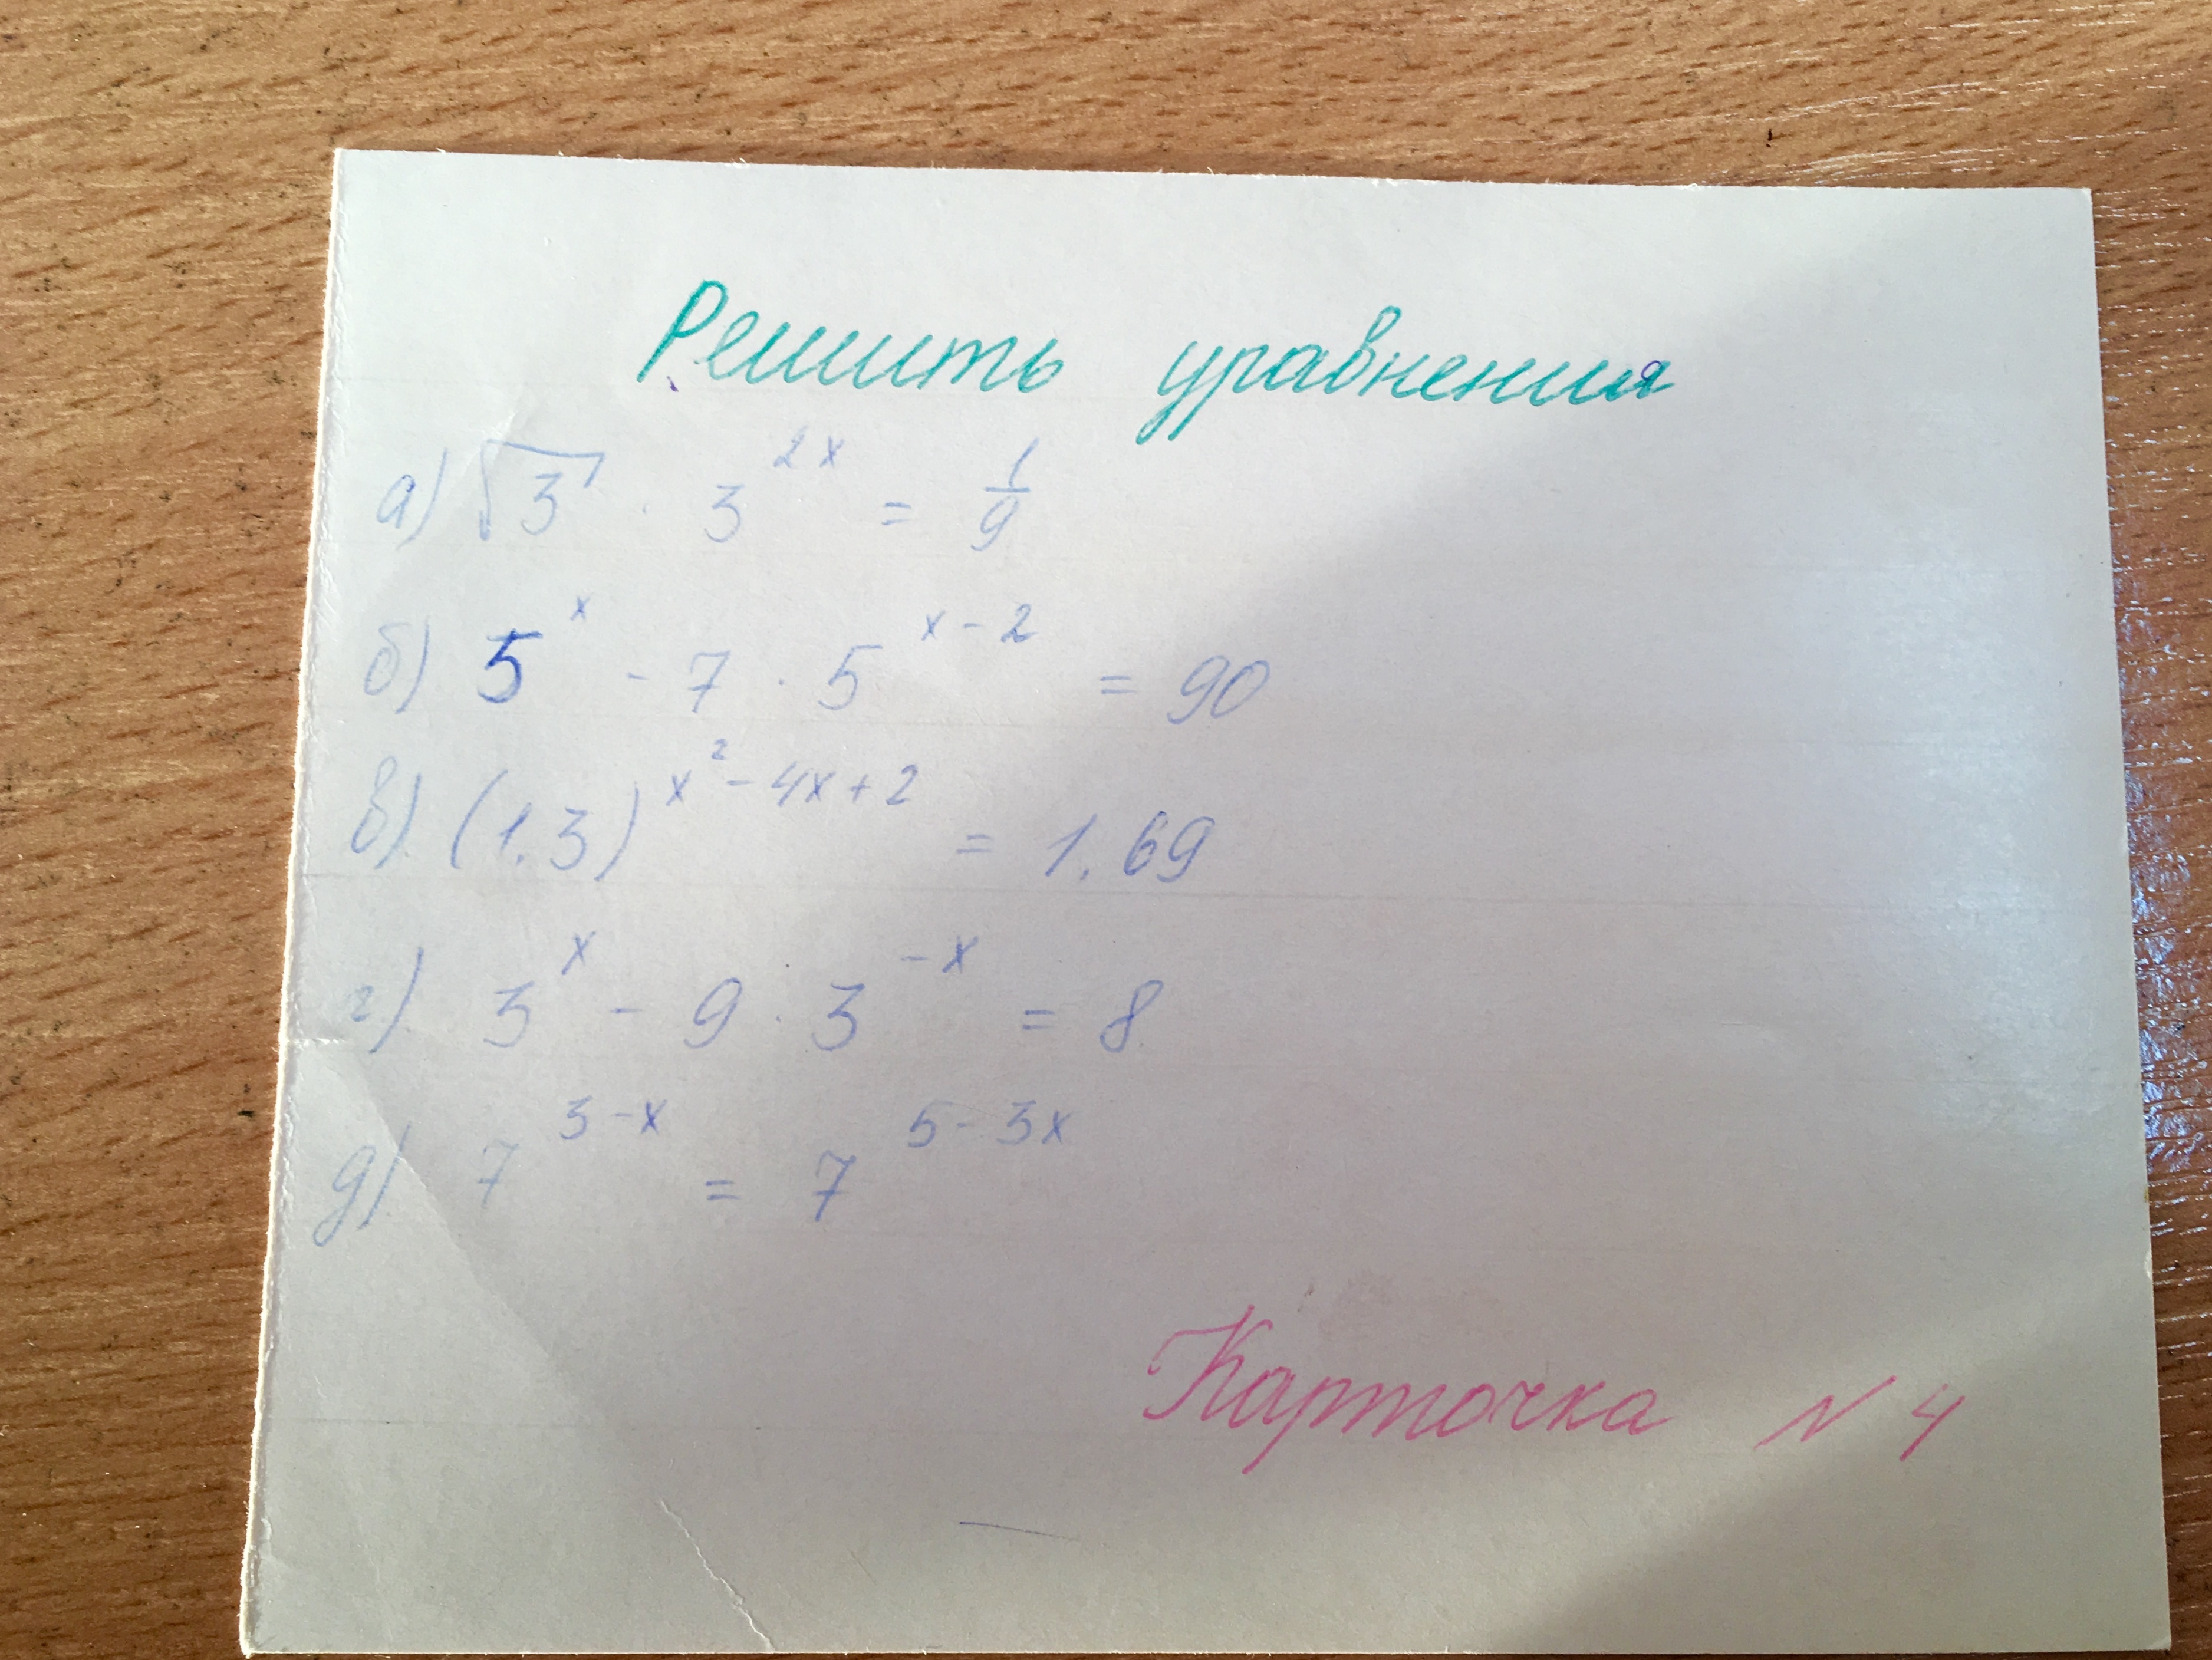 Решить уравнения
а) √3 · 3^2x = 1/9
б) 5^x - 7 · 5^x-2 = 90
в) (1.3)^x²-4x+2 = 1.69
г) 3^x - 9 · 3^-x = 8
д) 7^3-x = 7^5-3x
Карточка N 4